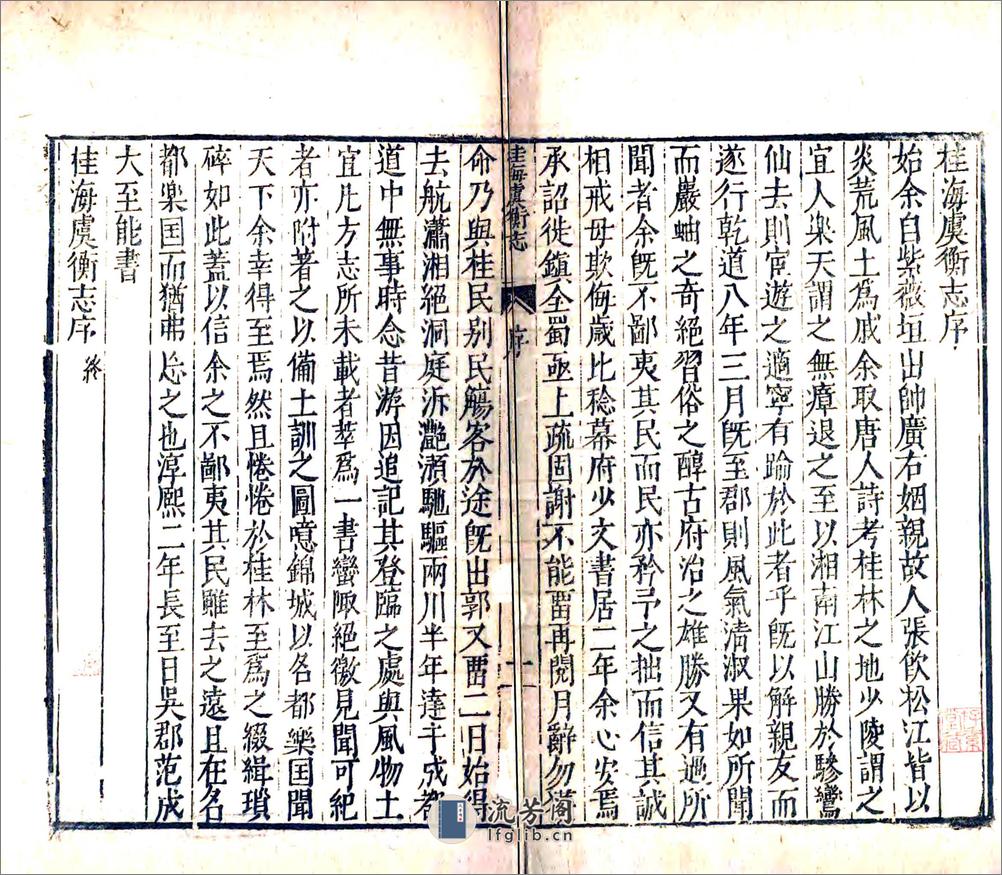 桂海虞衡志序
始余自紫薇垣出帥廣右姻親故人張飲松江皆以
炎荒風土爲戚余取唐人詩考桂林之地少陵謂之
宜人樂天謂之無瘴退之至以湘南江山勝於驂鸞
仙去則宦遊之適寧有踰於此者乎旣以解親友而
遂行乾道八年三月旣至郡則風氣清淑果如所聞
而巖岫之奇絕習俗之醇古府治之雄勝又有過所
聞者余旣不鄙夷其民而民亦矜予之拙而信其誠
相戒毋欺侮歲比稔幕府少文書居二年余心安焉
承詔徙鎮全蜀亟上疏固謝不能畱再閱月辭勿獲
桂海虞衡志
序
一
命乃與桂民別民觴客於途旣出郭又畱二日始得
去航瀟湘絕洞庭泝灧澦馳驅兩川半年達于成都
道中無事時念昔游因追記其登臨之處與風物土
宜凡方志所未載者萃爲一書蠻陬絕徼見聞可紀
者亦附著之以備土訓之圖噫錦城以名都樂国聞
天下余幸得至焉然且惓惓於桂林至爲之綴緝瑣
碎如此蓋以信余之不鄙夷其民雖去之遠且在名
都樂国而猶弗忘之也淳熙二年長至日吳郡范成
大至能書
桂海虞衡志序 終
流芳阁
lfglib.cn